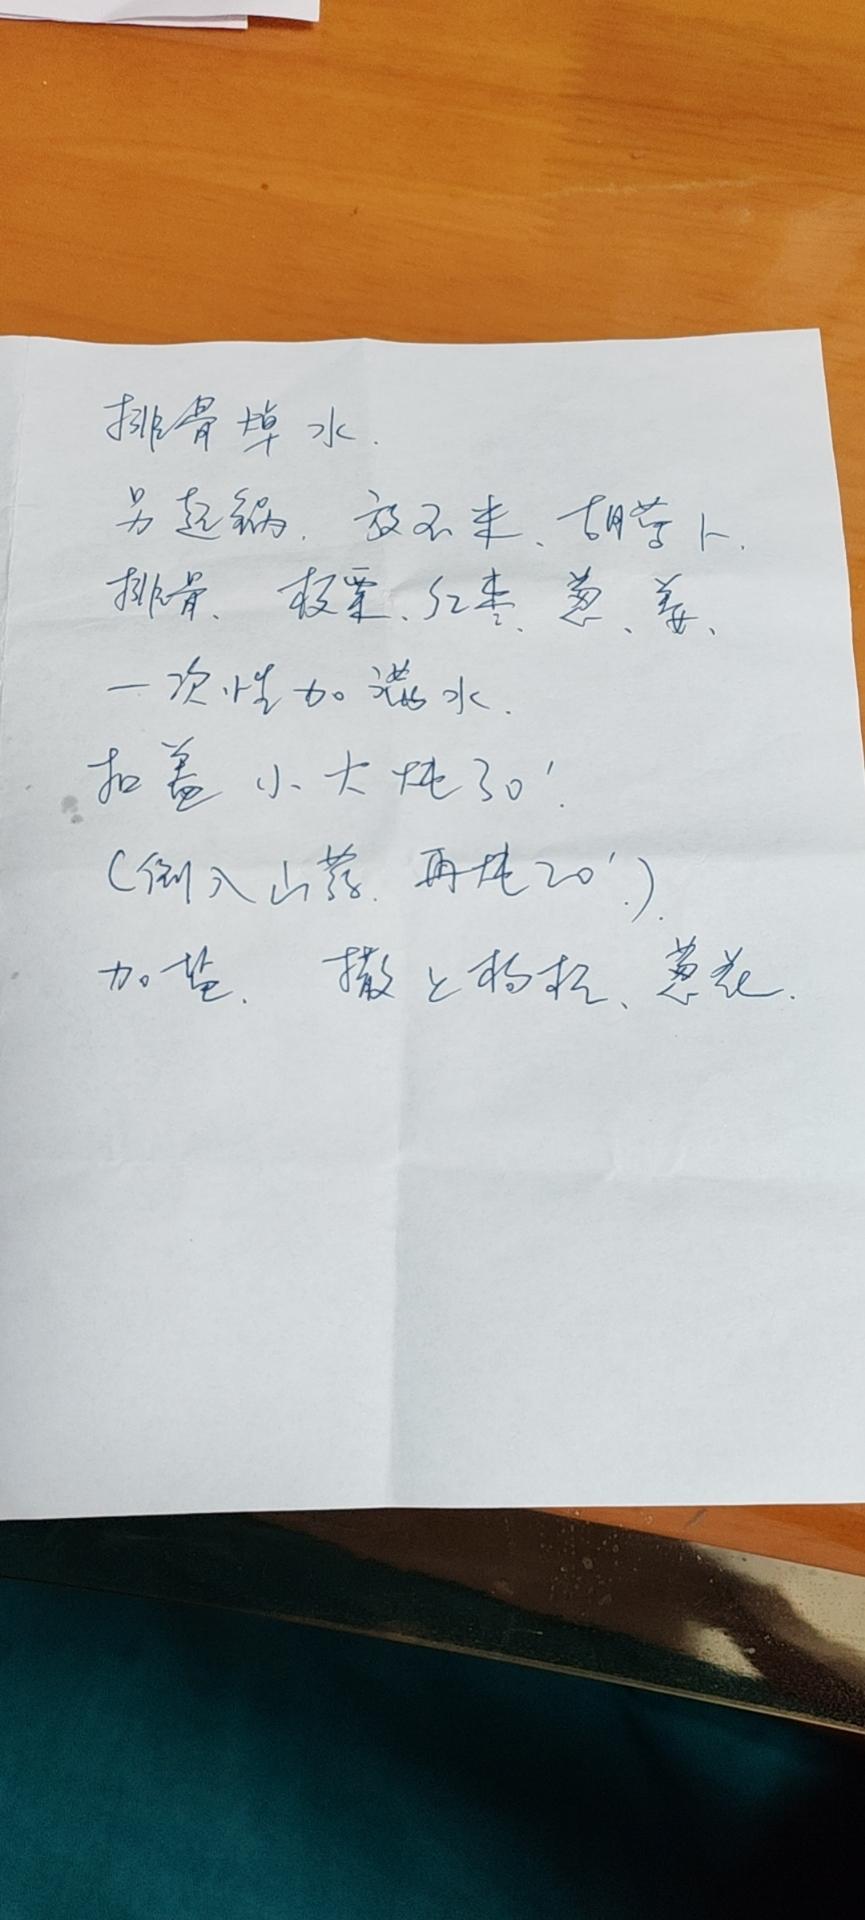 排骨焯水.
另起锅. 放玉米、胡萝卜.
排骨、板栗、红枣、葱、姜、
一次性加满水.
扣盖小火炖30′.
(倒入山药. 再炖20′.).
加盐. 撒上枸杞、葱花.